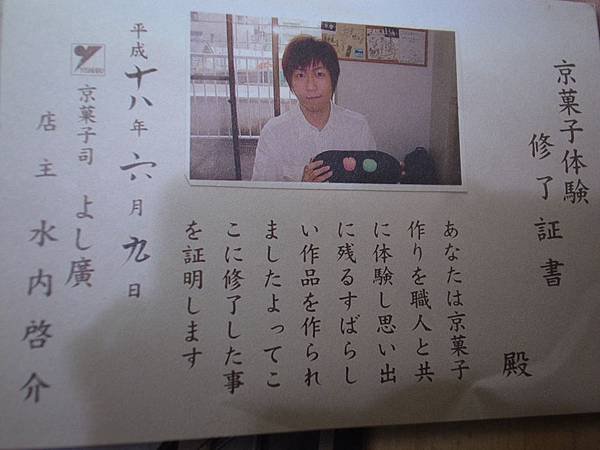 京菓子体験
修了証書
殿
あなたは京菓子
作りを職人と共
に体験し思い出
に残るすばらし
い作品を作られ
ましたよってこ
こに修了した事
を証明します
平成十八年六月九日
京菓子司 よし廣
店主 水内啓介